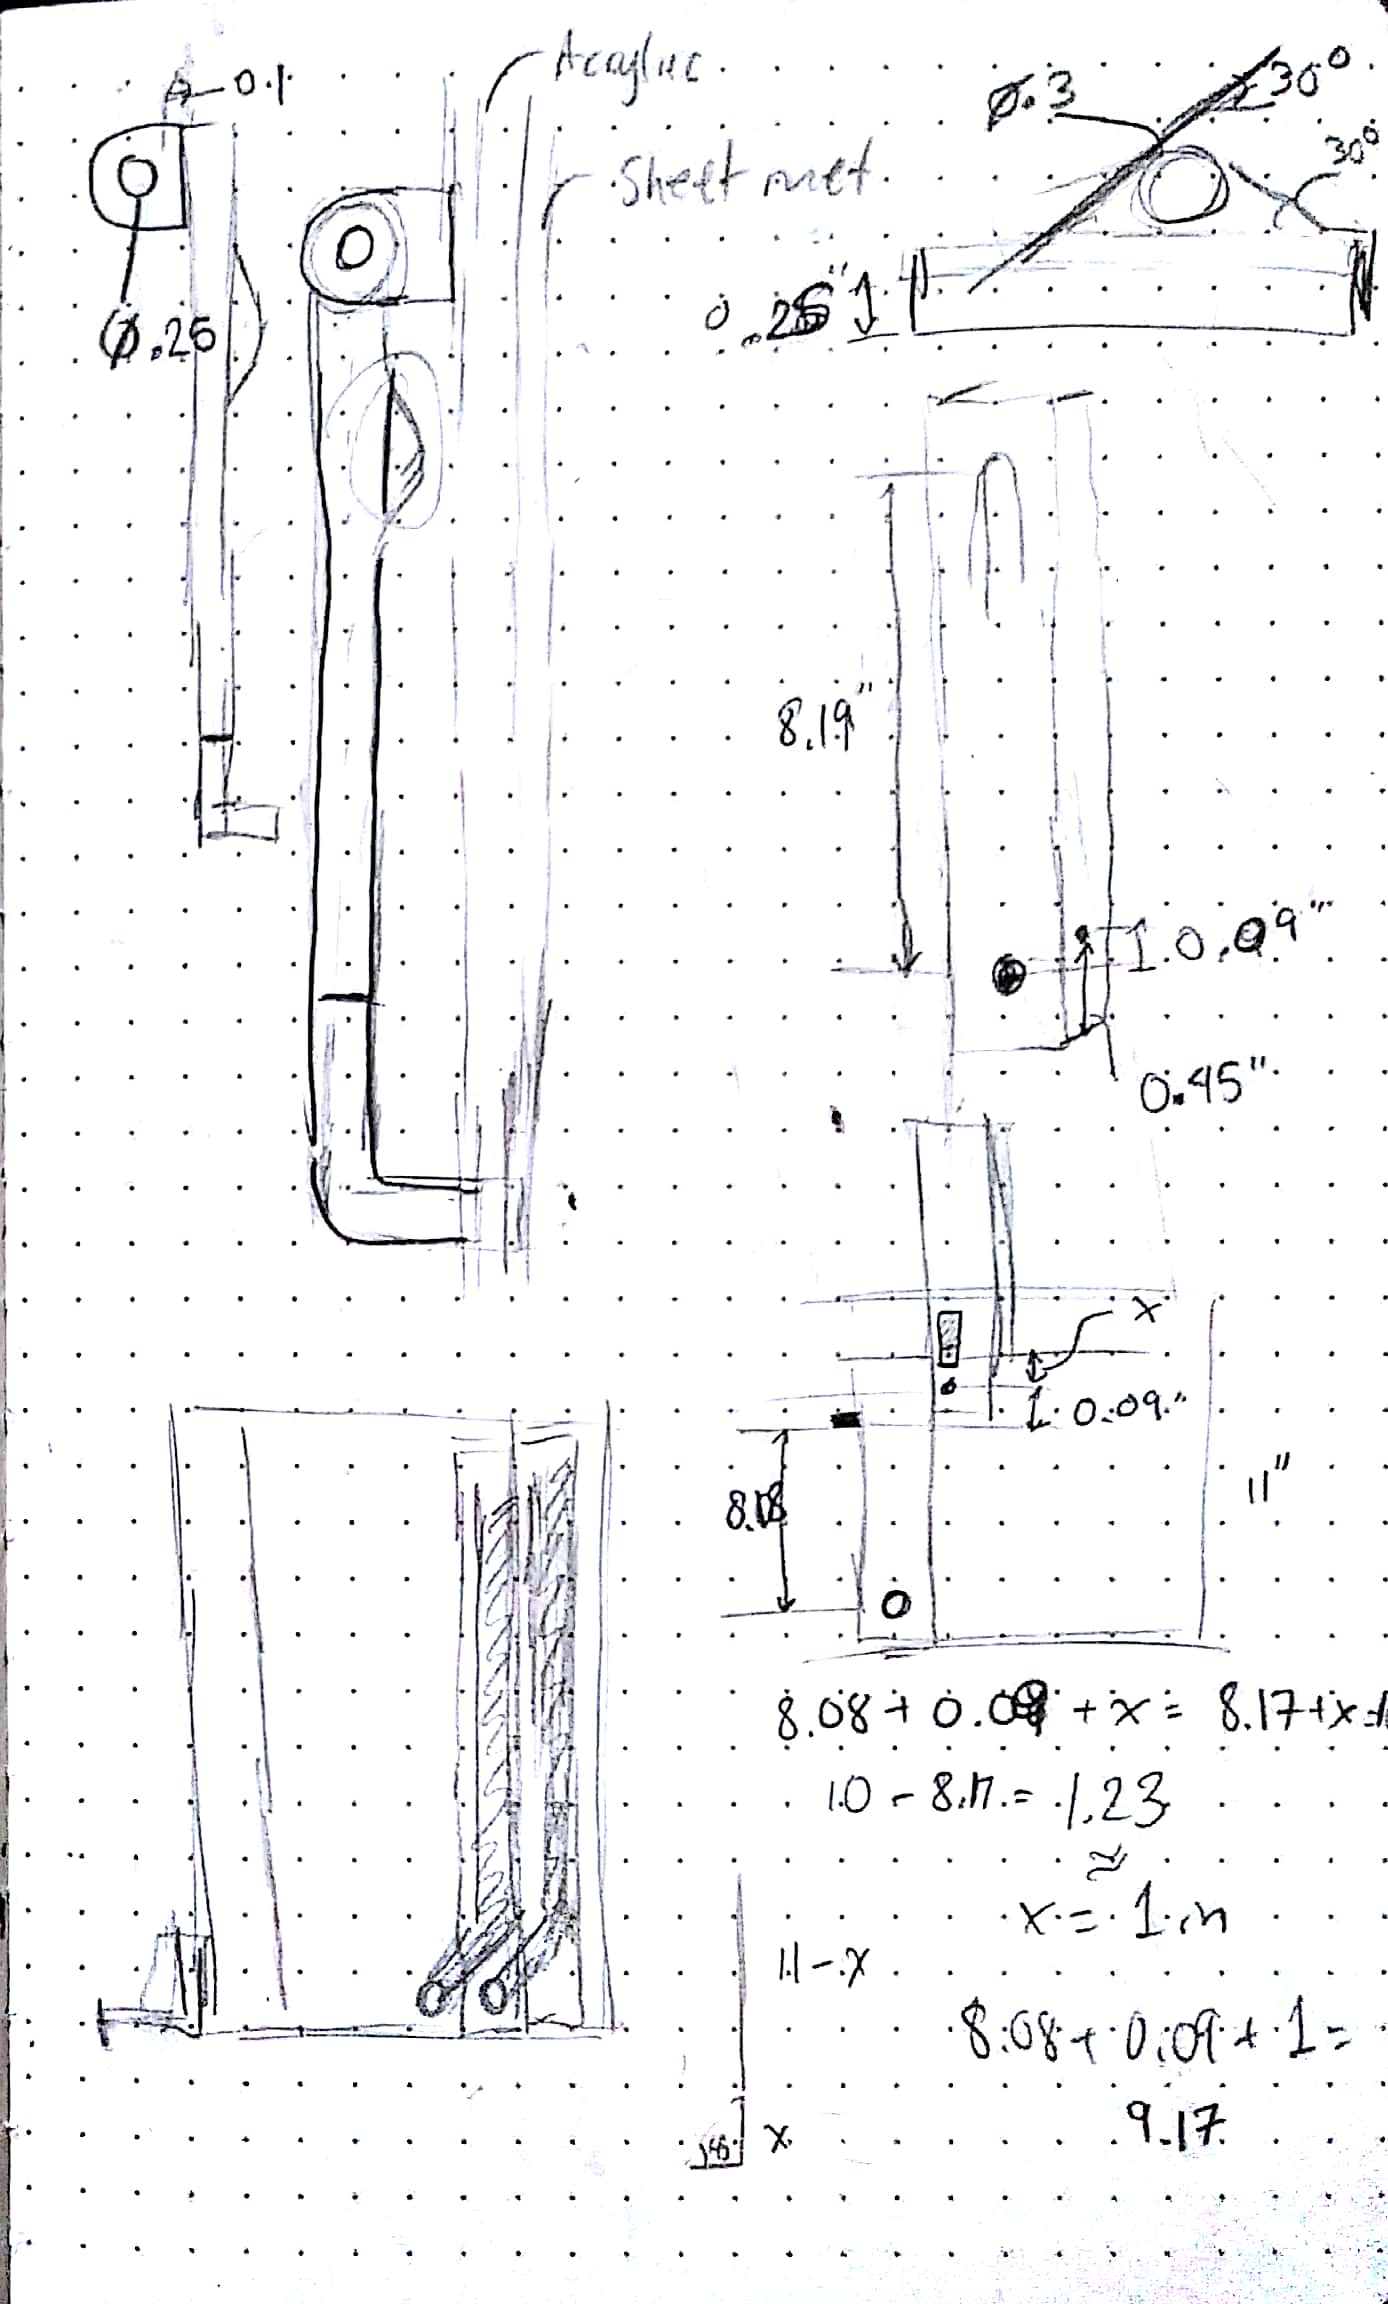 0.1
Acrylic
Sheet met.
Ø.3
30°
30°
Ø.25
0.25"
8.19"
0.09"
0.45"
x
0.09"
11"
8.08 + 0.09 + x = 8.17+x=
10 - 8.17 = 1.23
≈
x = 1 in
11-x
8.08 + 0.09 + 1 =
9.17
x